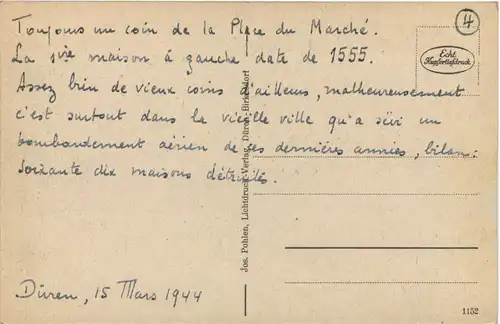 Toujours un coin de la Place du Marché.
4
La 1re maison à gauche date de 1555.
Echt
Kupfertiefdruck
Assez bien de vieux coins d'ailleurs, malheureusement
c'est surtout dans la vieille ville qu'a sévi un
bombardement aérien de ces dernières années, bilan:
soixante dix maisons détruites.
Jos. Pohlen, Lichtdruck-Verlag, Düren-Birkesdorf
Düren, 15 Mars 1944
1152